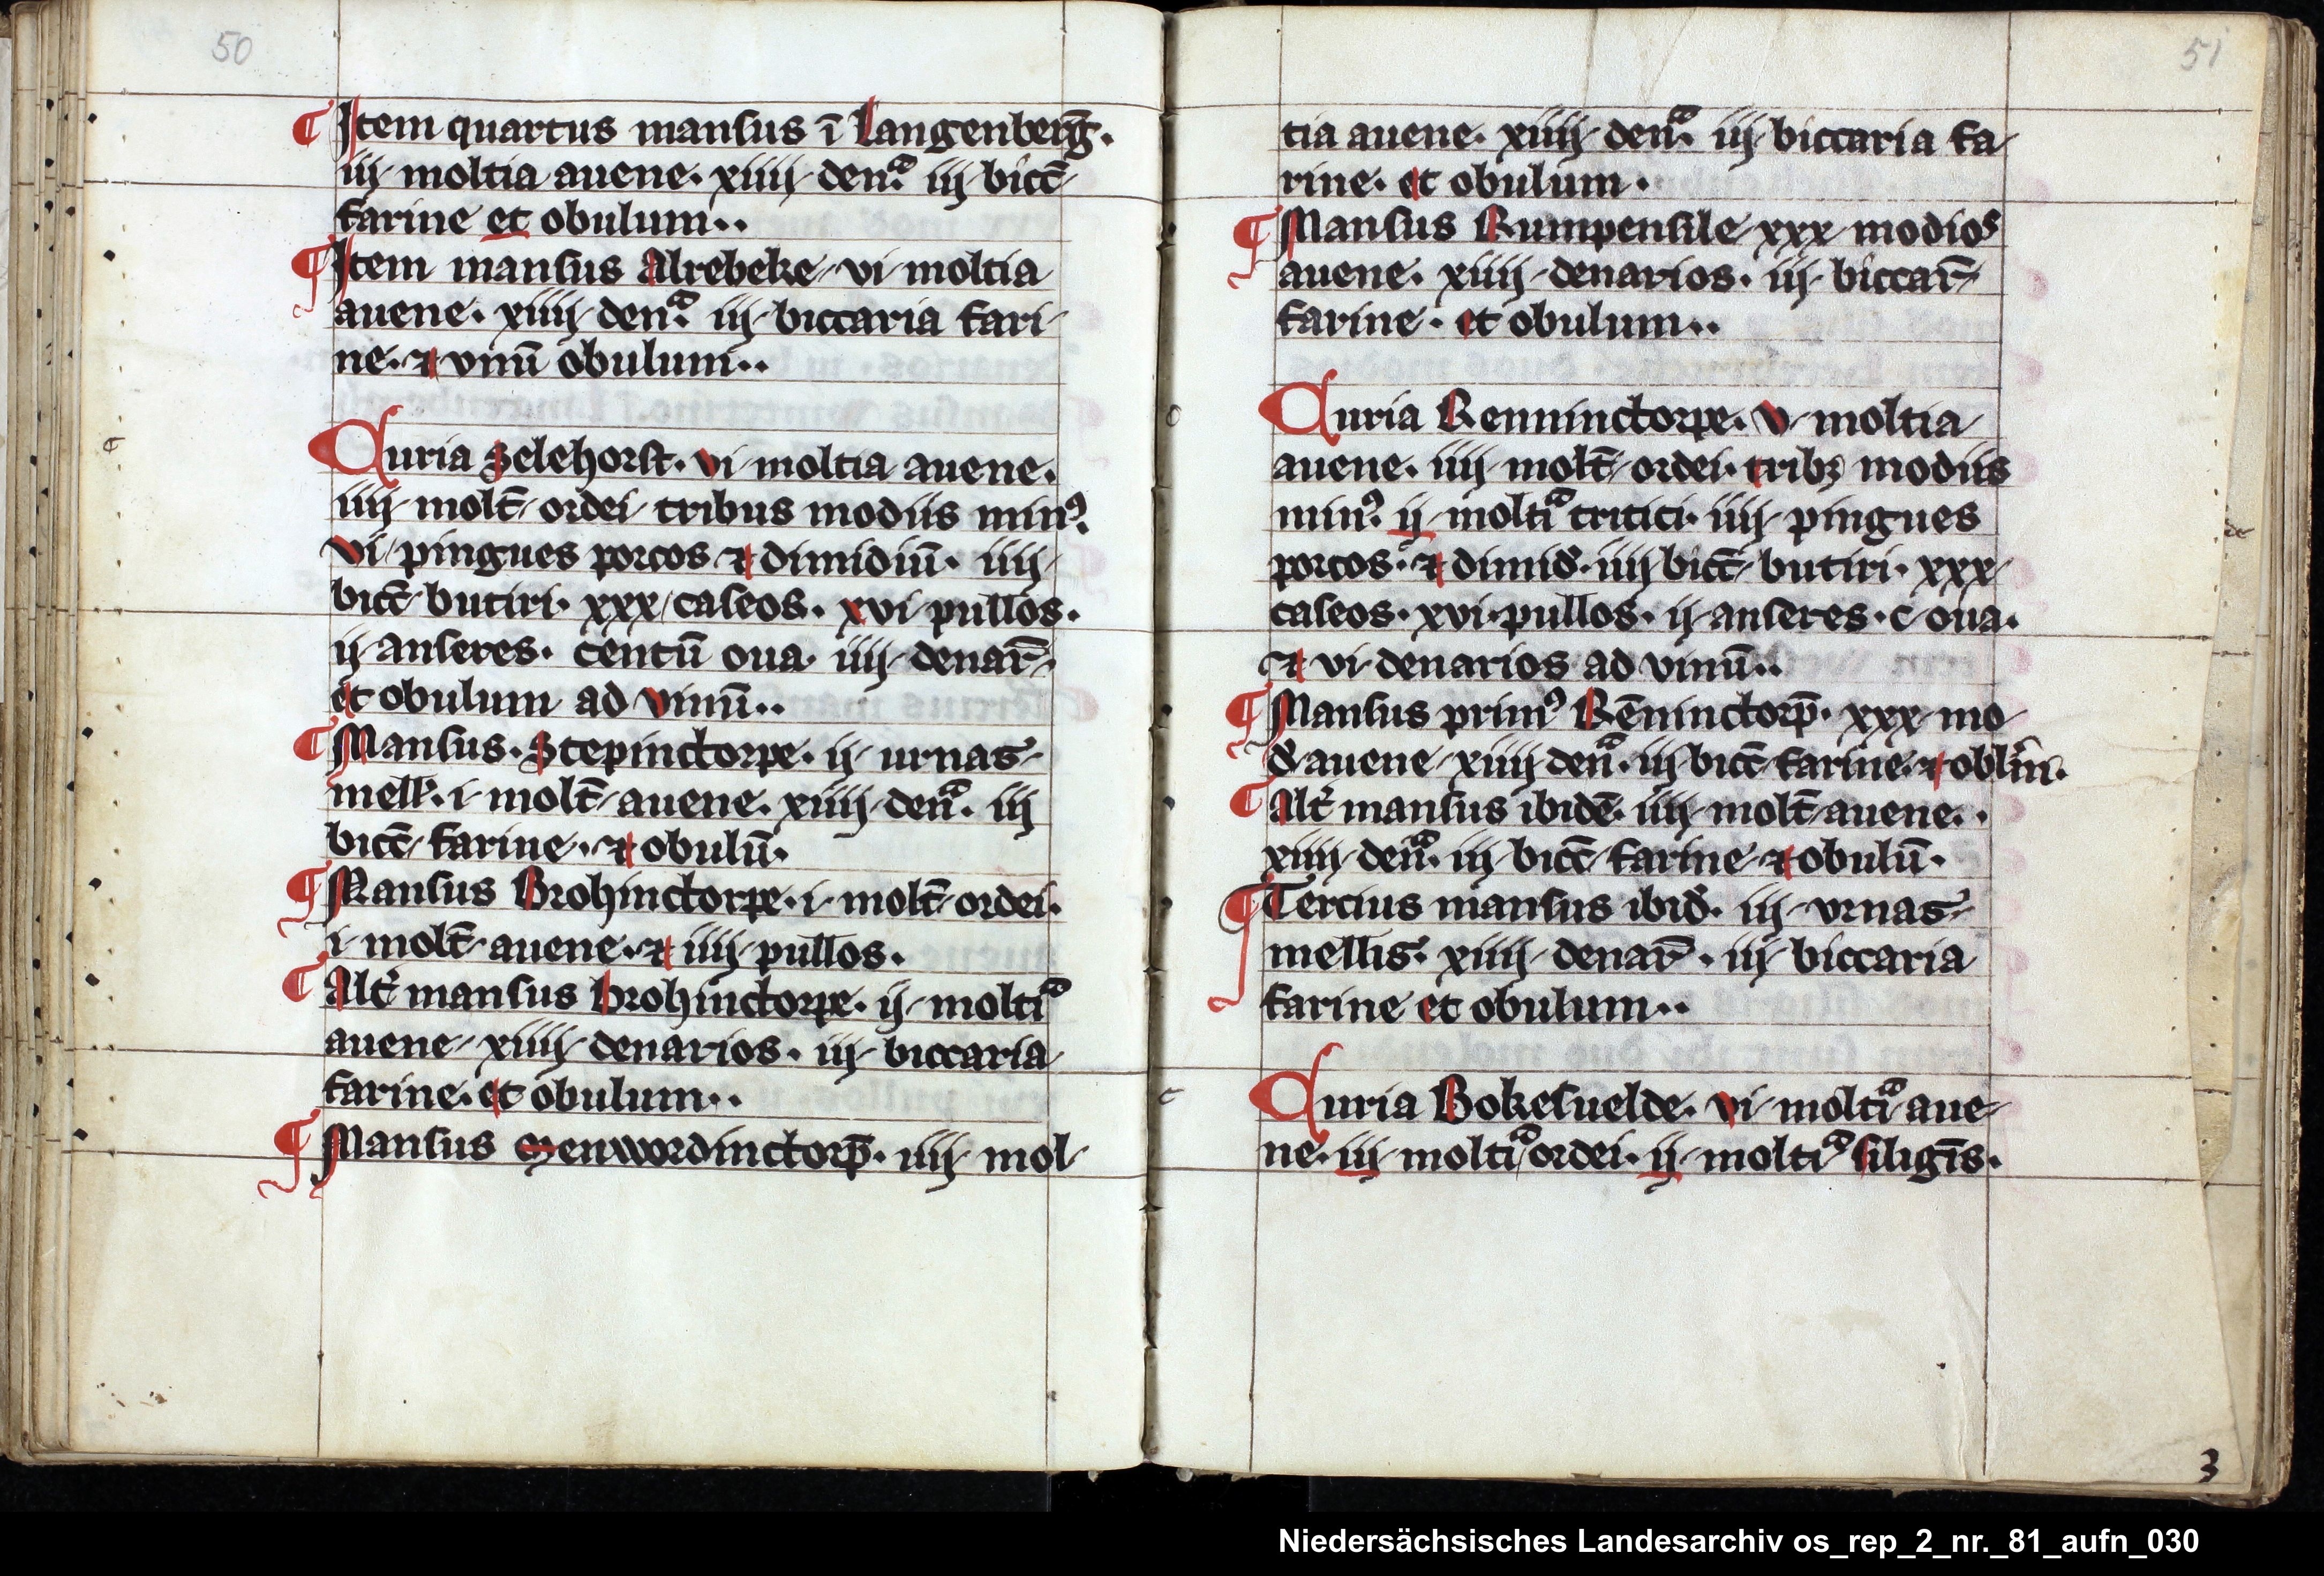 50
¶ Item quartus mansus ī Langenberḡ.
iij moltia auene. xiiij denͣ. iij bicc̄
farine et obulum..
¶ Item mansus Alrebeke vi moltia
auene. xiiij denͣ. iij biccaria fari
ne. ⁊ vnū obulum..
Curia Selehorst. vi moltia auene.
iiij molt̄ ordei tribus modiis minꝰ.
vi pingues porcos ⁊ dimidiū. iiij
bicc̄ butiri. xxx caseos. xvi pullos.
ij anseres. centū oua. iiij denar̄.
et obulum ad vinū..
¶ Mansus. Stepinctorpe. ij urnas
mell̄. i molt̄ auene. xiiij denͣ. iij
bicc̄ farine. ⁊ obulū.
¶ Mansus Brohinctorpe. i molt̄ ordei.
i molt̄ auene. ⁊ iiij pullos.
¶ Alt̉ mansus brohinctorpe. ij moltiͣ
auene xiiij denarios. iij biccaria
farine. et obulum..
¶ Mansus Menwordinctorp̄. iiij mol
51
tia auene. xiiij denͣ. iij biccaria fa
rine. et obulum.
¶ Mansus Rumpensile xxx modios
auene. xiiij denarios. iij biccar̄
farine. et obulum..
Curia Renninctorpe. v moltia
auene. iiij molt̄ ordei. tribꝫ modiis
minꝰ. ij moltiͣ tritici. iiij pingues
porcos. ⁊ dimid̉. iiij bicc̄ butiri. xxx
caseos. xvi. pullos. ij anseres. c oua.
⁊ vi denarios ad vinū..
¶ Mansus primꝰ Rēninctorp̄. xxx mo
d̉ auene xiiij denͣ. iij bicc̄ farine. ⁊ obl̄m.
¶ Alt̉ mansus ibidē. iiij molt̄ auene..
xiiij denͣ. iij bicc̄ farine ⁊ obulū.
¶ Tercius mansus ibid̉. iij vrnas
mellis. xiiij denar̄. iij biccaria
farine et obulum..
Curia Bokesuelde. vi moltiͣ aue
ne. iij moltiͣ ordei. ij moltiͣ siligīs.
3
Niedersächsisches Landesarchiv os_rep_2_nr._81_aufn_030